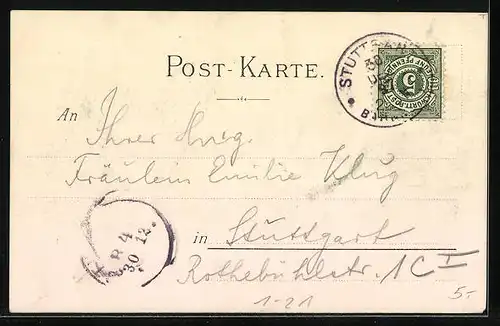 POST-KARTE.
STUTTGART
An
Ihrer Hwg.
Fräulein Emilie Klug
in Stuttgart
Rothebühlstr. 1 C I
1-21
5.-
5
FÜNF PFENNIG
30 12.